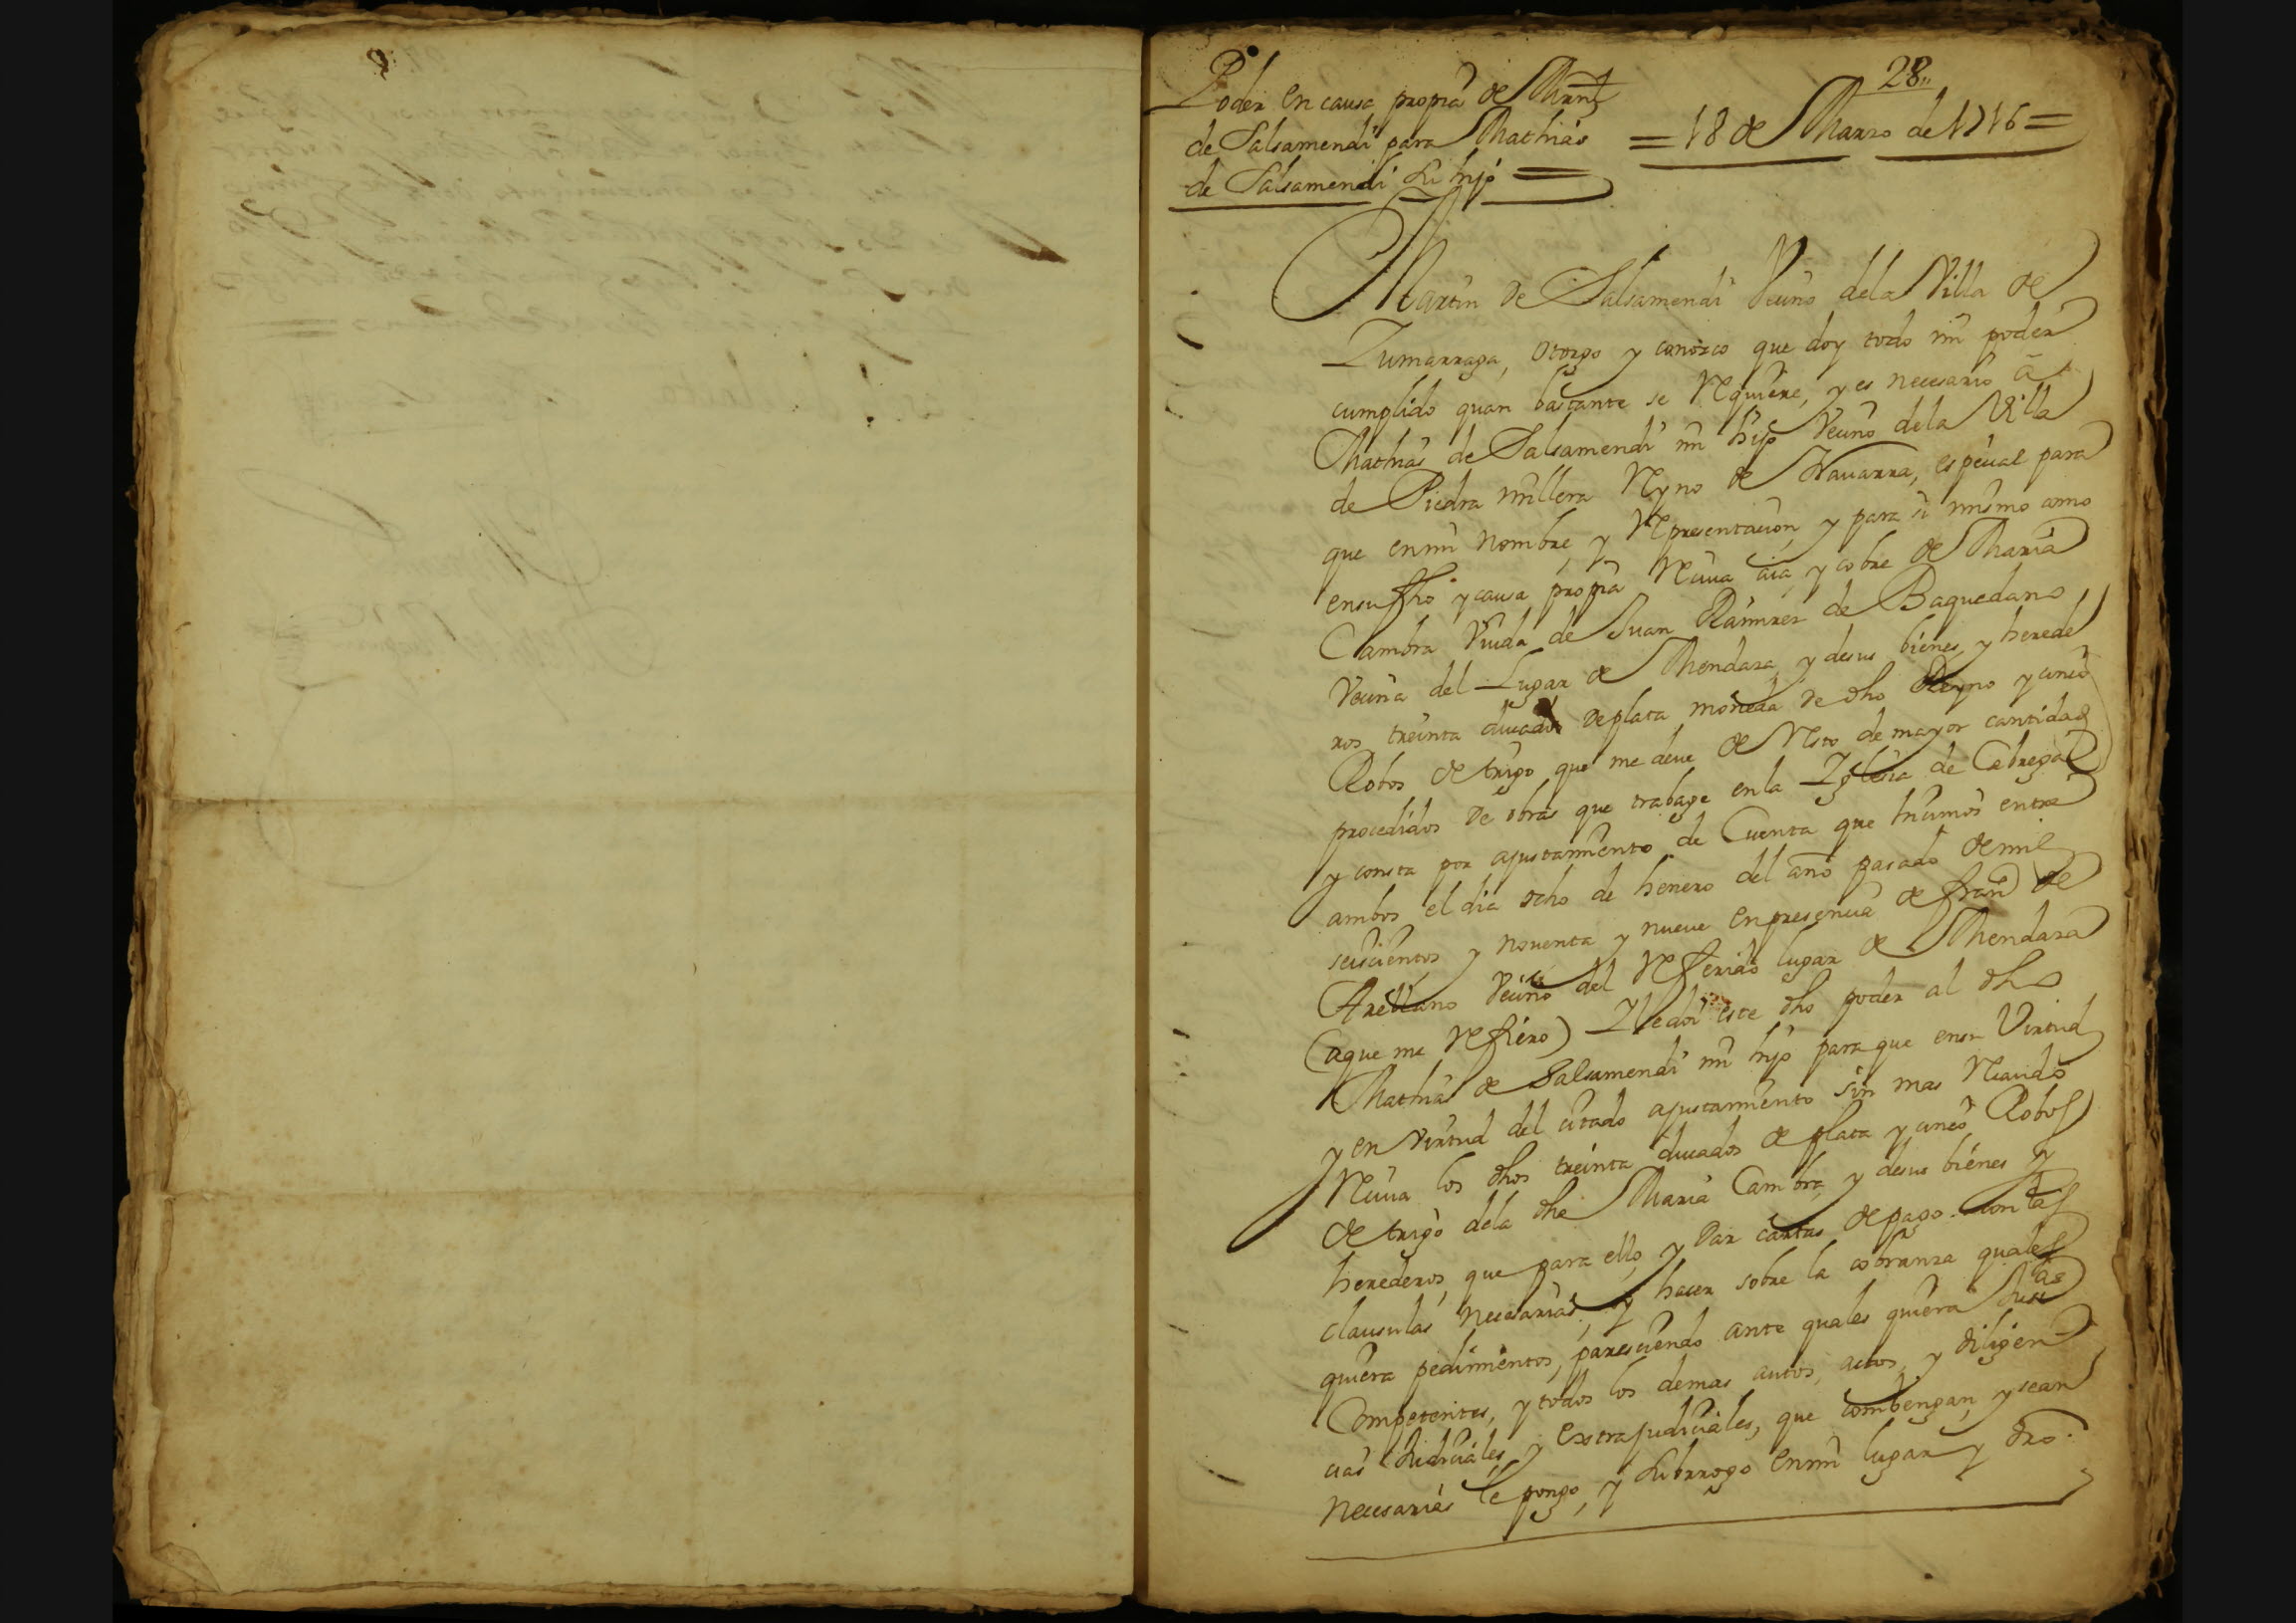 28,,
Poder en causa propia de Martn
de Salsamendi para Mathias
de Salsamendi su hijo =
= 18 de Marzo de 1716 =
Martin de Salsamendi vecino dela Villa de
Zumarraga, otorgo y conozco que doy todo mi poder
cumplido quan bastante se Requiere, y es necesario a
Mathias de Salsamendi mi hijo vecino dela Villa
de Piedra millera Reyno de Navarra, especial para
que en mi nombre, y Representacion, y para si mismo como
en su fho y causa propia Reciva aia y cobre de Maria
Cambra Viuda de Juan Ramirez de Baquedano,
vecina del Lugar de Mendaza, y de sus bienes y herede
ros treinta ducados de plata moneda de dho Reyno y cinco
Robos de trigo que me deve de Resto de mayor cantidad
procedidos de obras que trabaje en la Yglesia de Cabrega
y consta por ajustamiento de Cuenta que hicimos entre
ambos el dia ocho de henero del año pasado de mil
seiscientos y noventa y nueve en presencia de Fran de
Arellano vecino del Referido lugar de Mendaza
(aque me Refiero) Y le doi este dho poder al dho
Mathias de Salsamendi mi hijo para que en su Virtud
y en virtud del citado ajustamiento sin mas Recaudo
Reciva los dhos treinta ducados de plata y cinco Robos
de trigo dela dha Maria Cambra, y de sus bienes y
herederos, que para ello, y dar cartas de pago con las
clausulas necesarias, y hacer sobre la cobranza quales
quiera pedimientos, paresciendo ante quales quiera Jueces
Competentes, y todos los demas autos, actos, y diligen
cias Judiciales, y extrajudiciales, que combengan, y sean
necesarias le pongo, y subrrogo en mi lugar y dro.